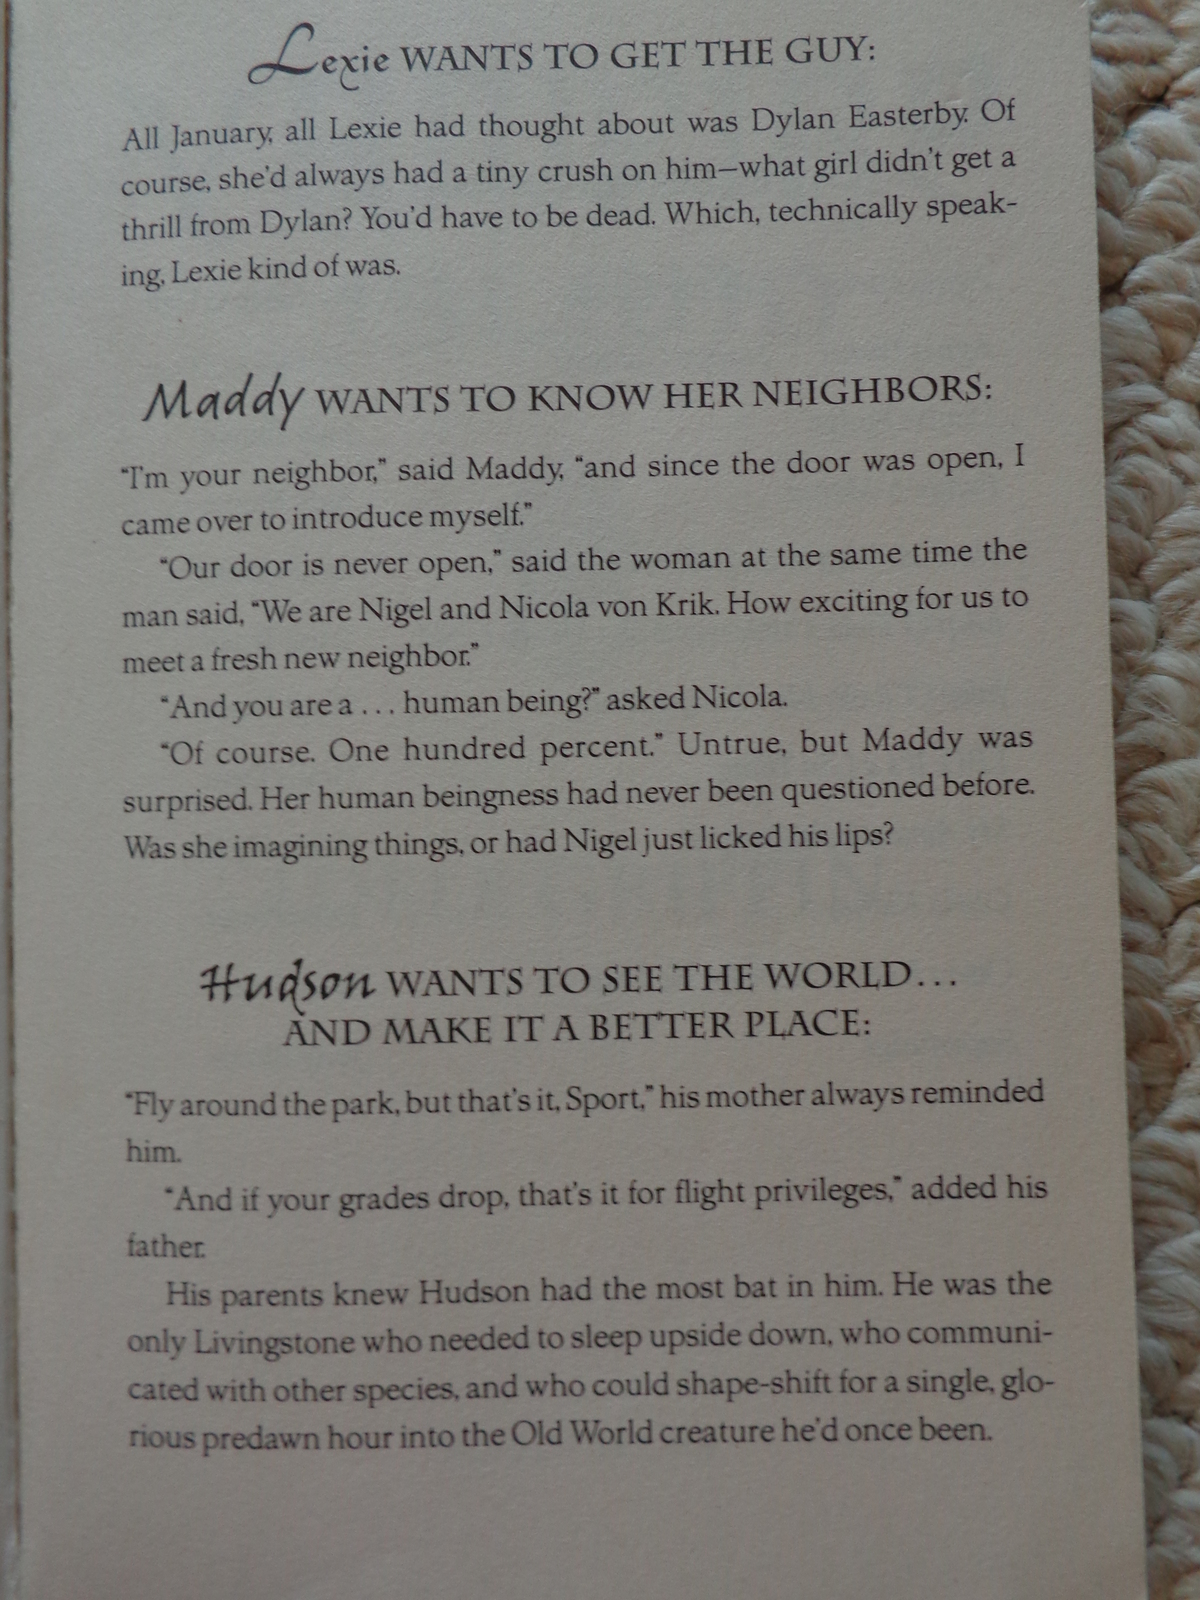 Lexie WANTS TO GET THE GUY:
All January, all Lexie had thought about was Dylan Easterby. Of
course, she'd always had a tiny crush on him—what girl didn't get a
thrill from Dylan? You'd have to be dead. Which, technically speak-
ing, Lexie kind of was.
Maddy WANTS TO KNOW HER NEIGHBORS:
"I'm your neighbor," said Maddy, "and since the door was open, I
came over to introduce myself."
"Our door is never open," said the woman at the same time the
man said, "We are Nigel and Nicola von Krik. How exciting for us to
meet a fresh new neighbor."
"And you are a . . . human being?" asked Nicola.
"Of course. One hundred percent." Untrue, but Maddy was
surprised. Her human beingness had never been questioned before.
Was she imagining things, or had Nigel just licked his lips?
Hudson WANTS TO SEE THE WORLD . . .
AND MAKE IT A BETTER PLACE:
"Fly around the park, but that's it, Sport," his mother always reminded
him.
"And if your grades drop, that's it for flight privileges," added his
father.
His parents knew Hudson had the most bat in him. He was the
only Livingstone who needed to sleep upside down, who communi-
cated with other species, and who could shape-shift for a single, glo-
rious predawn hour into the Old World creature he'd once been.